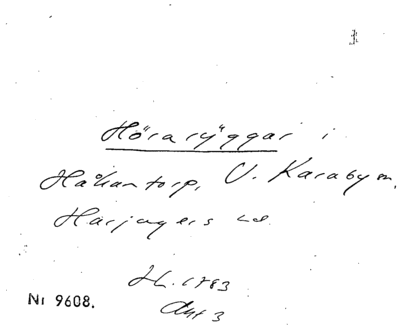 Höraryggar i
Håkantorp, V. Karaby sn.
Harjagers hd
1783
Akt 3
Nr 9608.